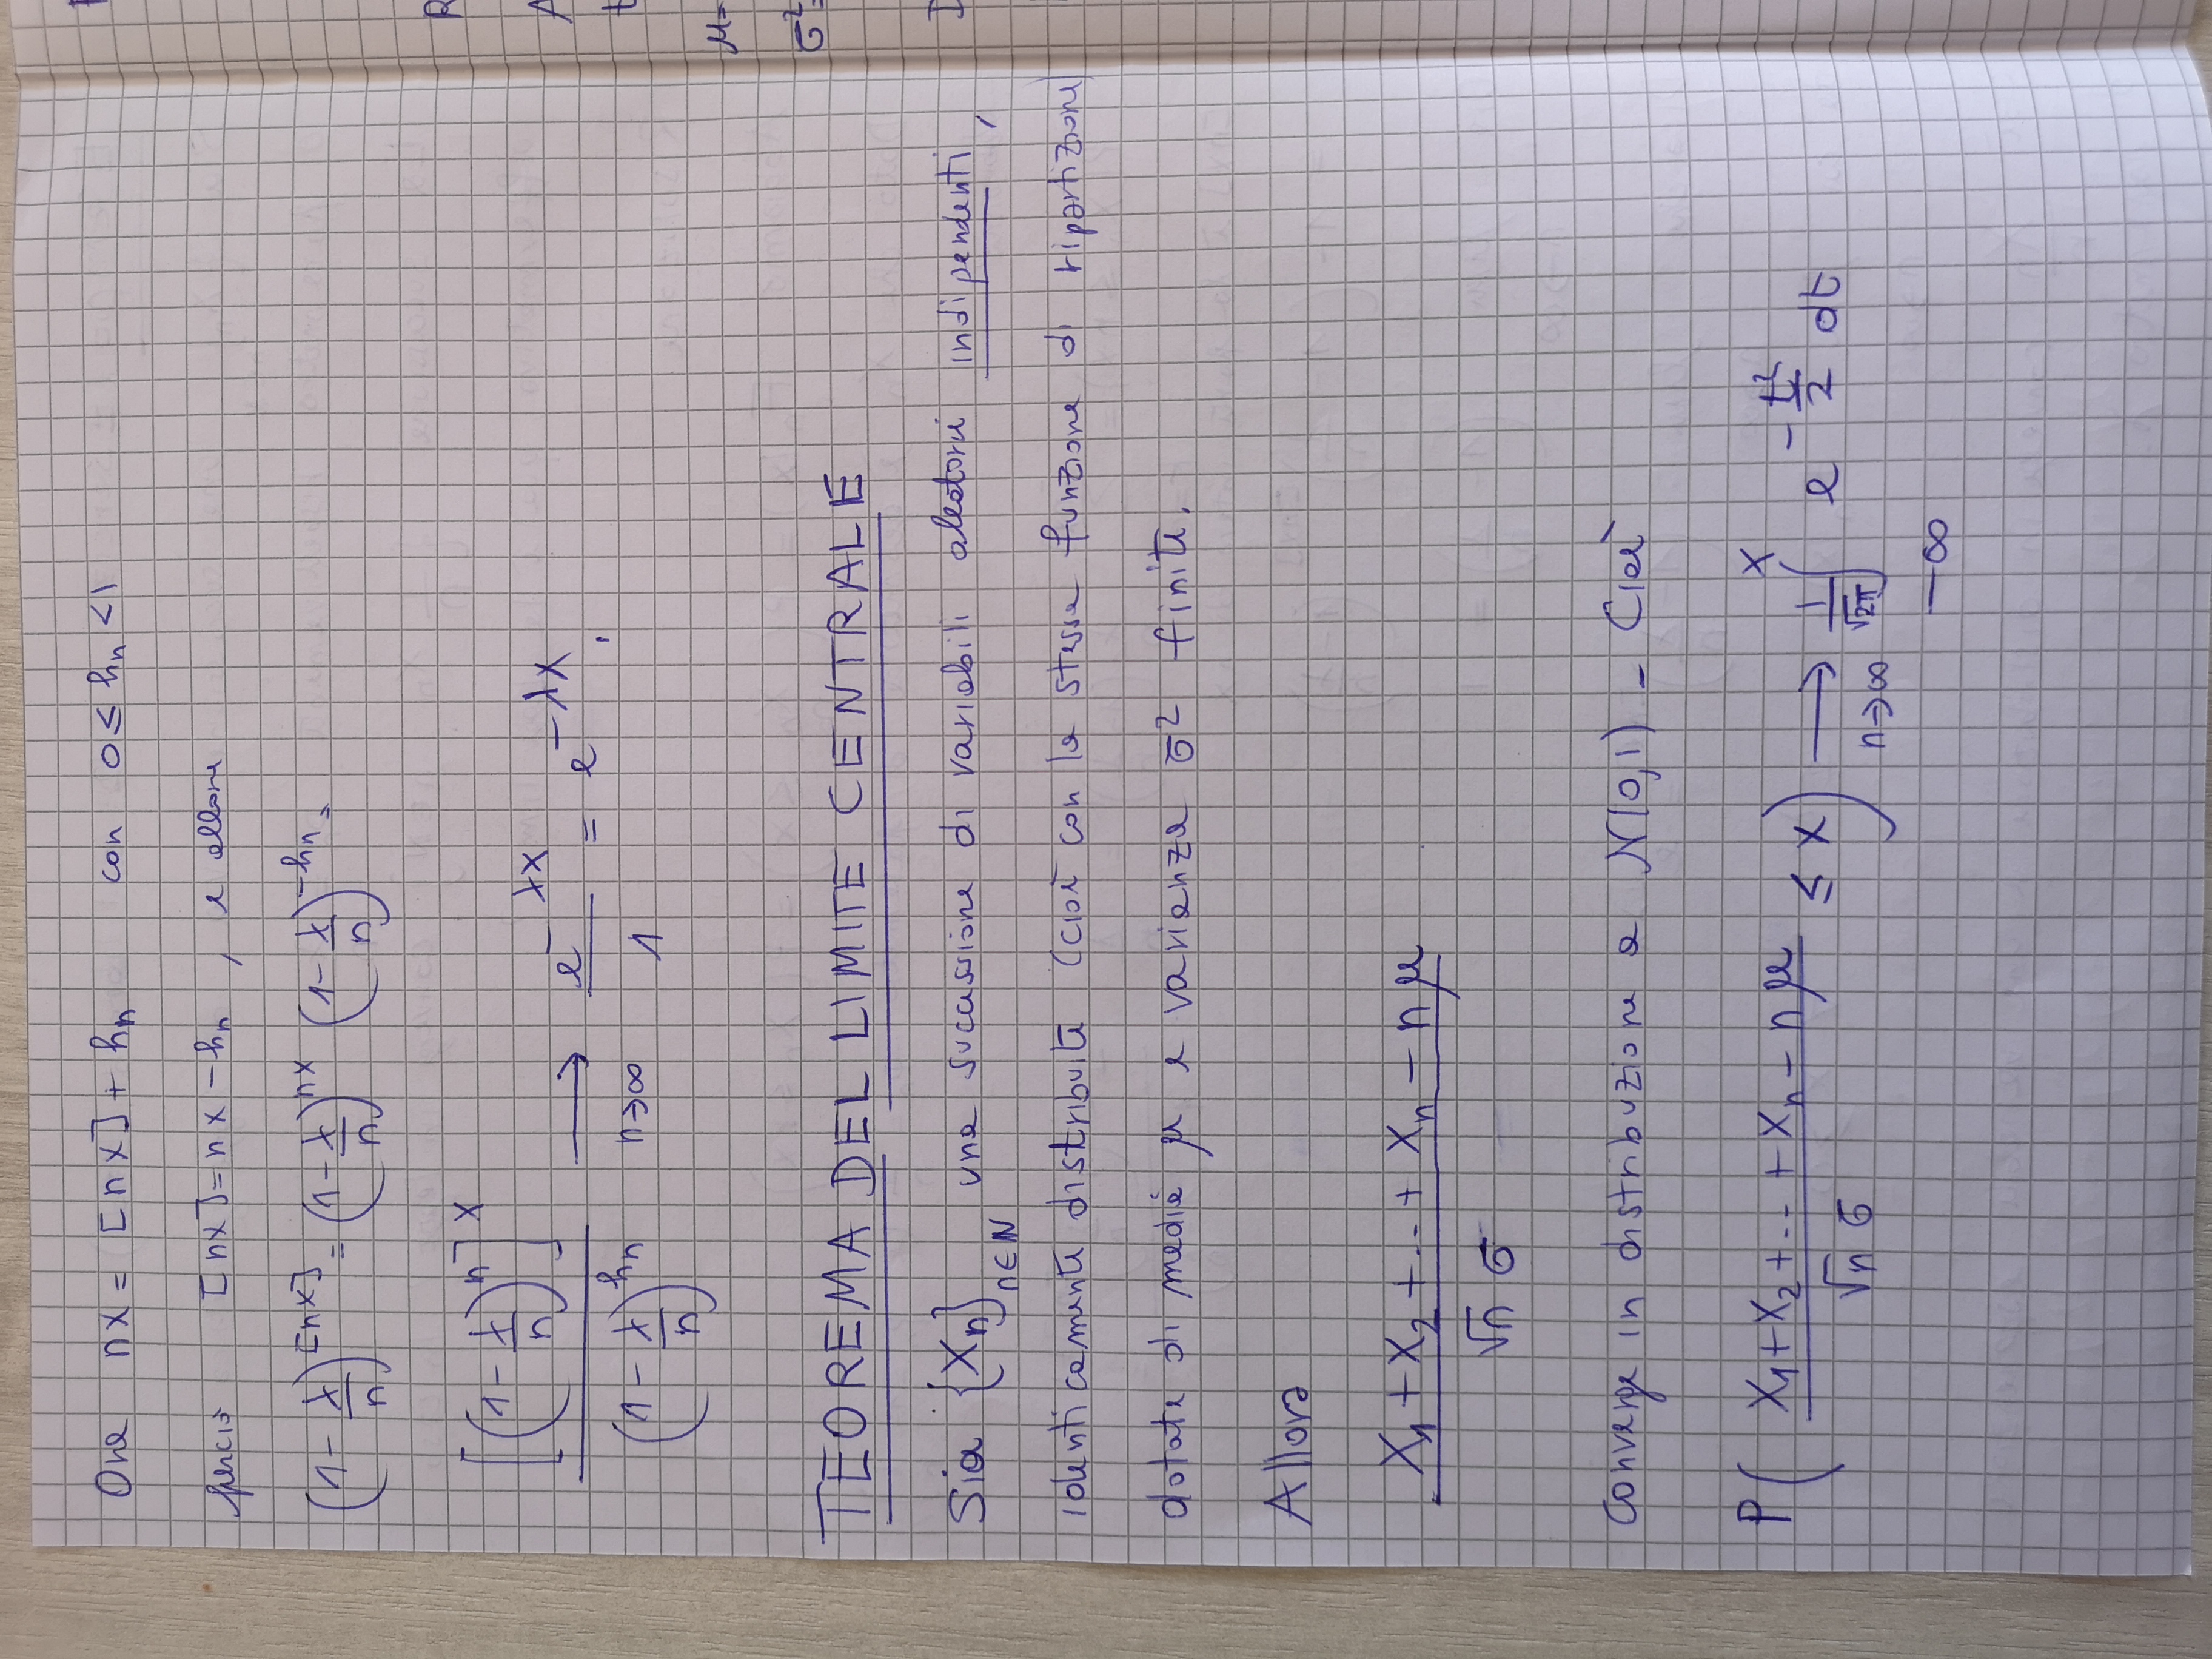 Ora nx = [nx] + hₙ con 0 ≤ hₙ < 1
perciò [nx] = nx - hₙ , e allora
(1 - λ/n)^[nx] = (1 - λ/n)^nx (1 - λ/n)^-hₙ =
[(1 - λ/n)^n]^x / (1 - λ/n)^hₙ → n→∞ e^-λx / 1 = e^-λx .
TEOREMA DEL LIMITE CENTRALE
Sia {Xₙ} n∈N una successione di variabili aleatorie indipendenti,
identicamente distribuite (cioè con la stessa funzione di ripartizione)
dotate di media μ e varianza σ² finite.
Allora
X₁ + X₂ + ... + Xₙ - nμ / √n σ
Converge in distribuzione a N(0,1) - Cioè
P( X₁ + X₂ + ... + Xₙ - nμ / √n σ ≤ x ) → n→∞ 1/√2π ∫ -∞ x e^-t²/2 dt
μ=
σ²=